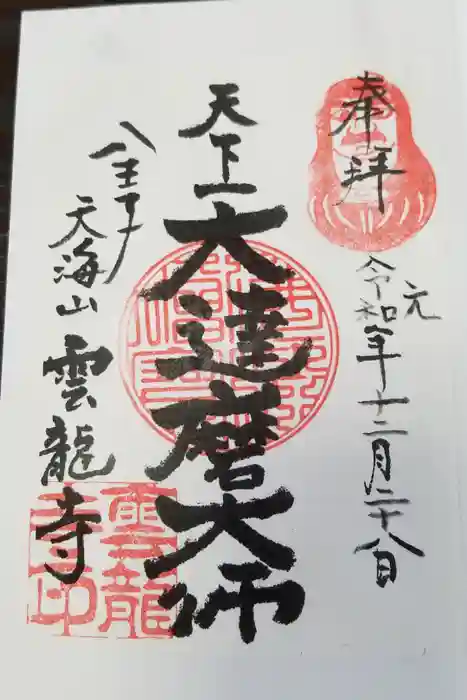 奉拝
令和元年十二月二十八日
天下一
大達磨大師
八王子
天海山
雲龍寺
雲龍寺印